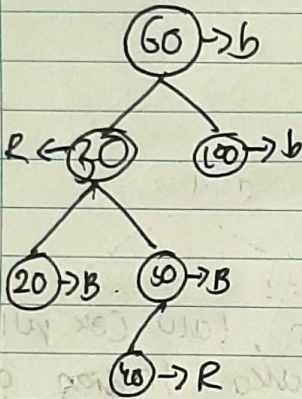 60 → b
R ← 30 100 → b
20 → B. 50 → B
40 → R